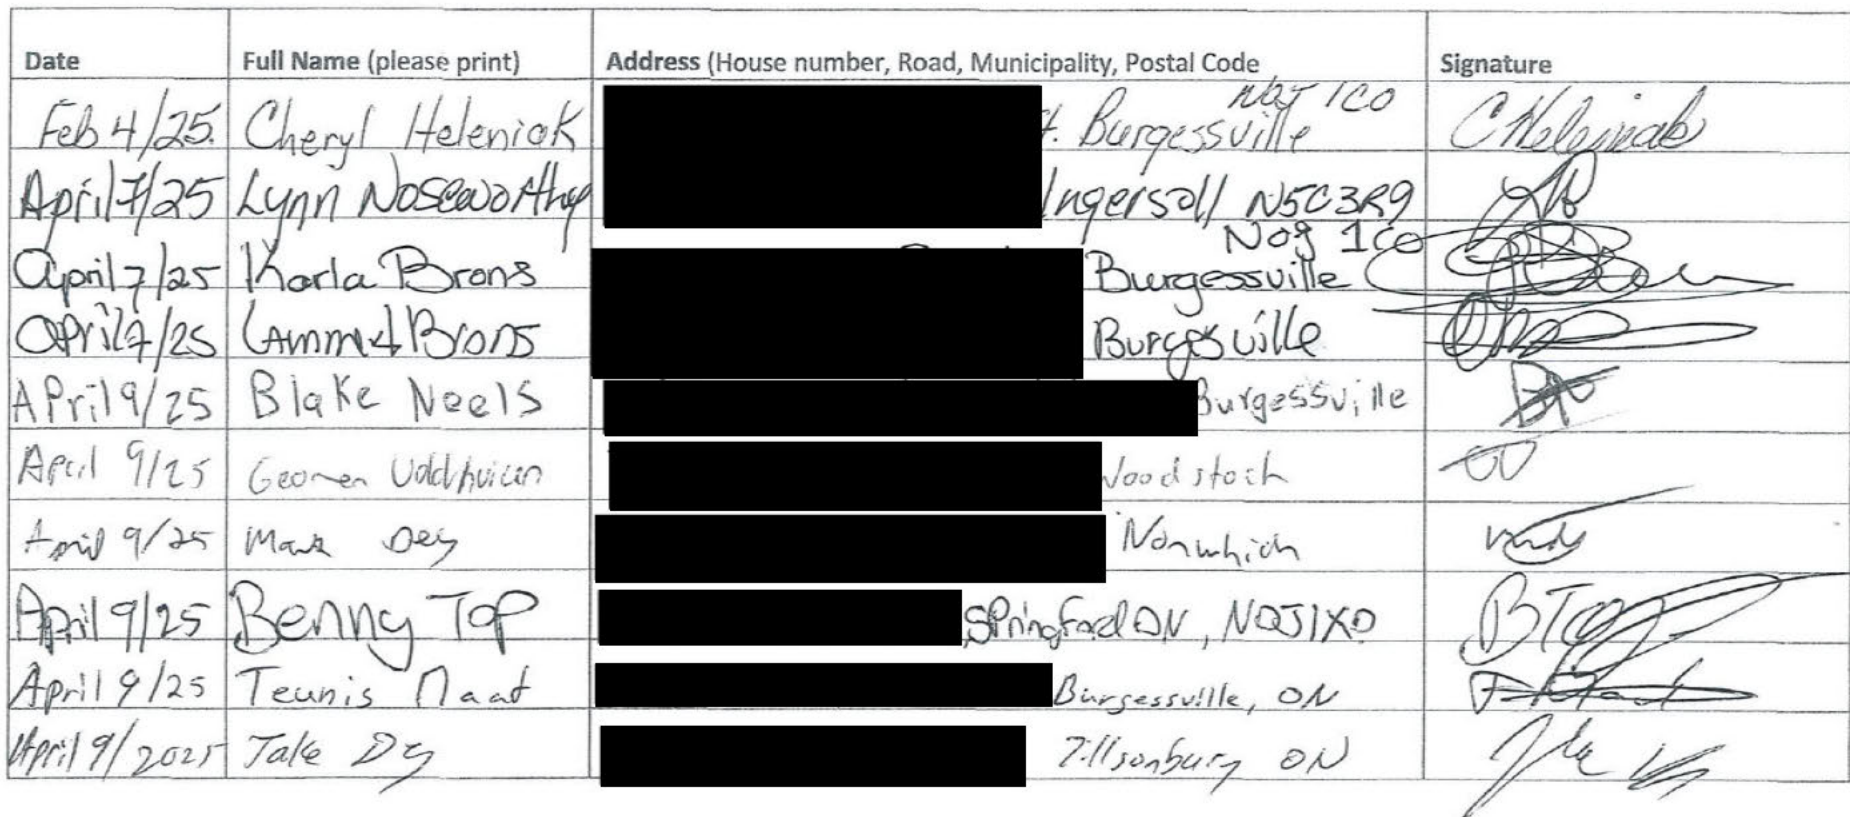 Date Full Name (please print) Address (House number, Road, Municipality, Postal Code Signature
N0J 1C0
Feb 4/25. Cheryl Heleniak t. Burgessville CHeleniak
April 7/25 Lynn Noseworthy Ingersoll N5C3R9
N0J 1C0
April 7/25 Karla Brons Burgessville
April 7/25 Brons Burgesville
April 9/25 Blake Neels Burgessville
April 9/25 Woodstock
April 9/25 Mark Dey Norwhich
April 9/25 Benny Top Springford ON, N0J1X0 BTop
April 9/25 Teunis Maat Burgessville, ON
April 9/2025 Jake Dy Tillsonburg ON